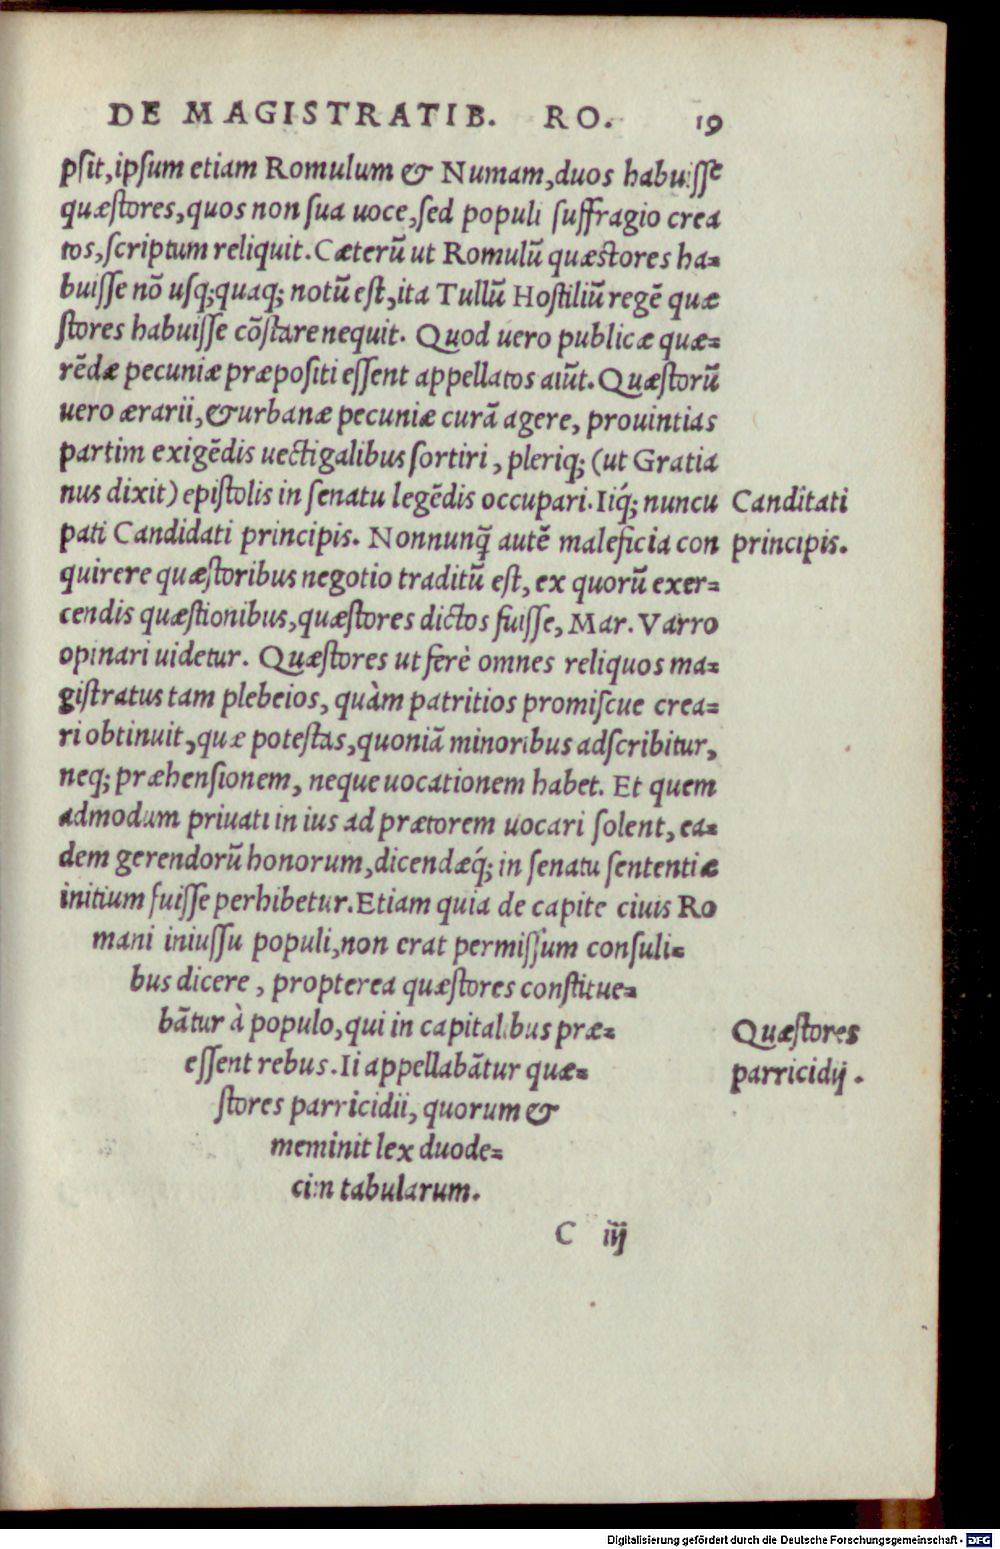 DE MAGISTRATIB. RO. 19
psit, ipsum etiam Romulum & Numam, duos habuisse
quæstores, quos non sua uoce, sed populi suffragio crea
tos, scriptum reliquit. Cæterũ ut Romulũ quæstores ha-
buisse nõ usq; quaq; notũ est, ita Tullũ Hostiliũ regẽ quæ
stores habuisse cõstare nequit. Quod uero publicæ quæ-
rẽdæ pecuniæ præpositi essent appellatos aiũt. Quæstorũ
uero ærarii, & urbanæ pecuniæ curã agere, prouintias
partim exigẽdis uectigalibus sortiri, pleriq; (ut Gratia
nus dixit) epistolis in senatu legẽdis occupari. Iiq́; nuncu
pati Candidati principis. Nonnunq̃ autẽ maleficia con
quirere quæstoribus negotio traditũ est, ex quorũ exer-
cendis quæstionibus, quæstores dictos fuisse, Mar. Varro
opinari uidetur. Quæstores ut ferè omnes reliquos ma-
gistratus tam plebeios, quàm patritios promiscue crea-
ri obtinuit, quæ potestas, quoniã minoribus adscribitur,
neq; præhensionem, neque uocationem habet. Et quem
admodum priuati in ius ad prætorem uocari solent, ea-
dem gerendorũ honorum, dicendæq́; in senatu sententiæ
initium fuisse perhibetur. Etiam quia de capite ciuis Ro
mani iniussu populi, non erat permissum consuli-
bus dicere, propterea quæstores constitue-
bãtur à populo, qui in capitalibus præ-
essent rebus. Ii appellabãtur quæ-
stores parricidii, quorum &
meminit lex duode-
cim tabularum.
C iij
Canditati
principis.
Quæstores
parricidij.
Digitalisierung gefördert durch die Deutsche Forschungsgemeinschaft - DFG